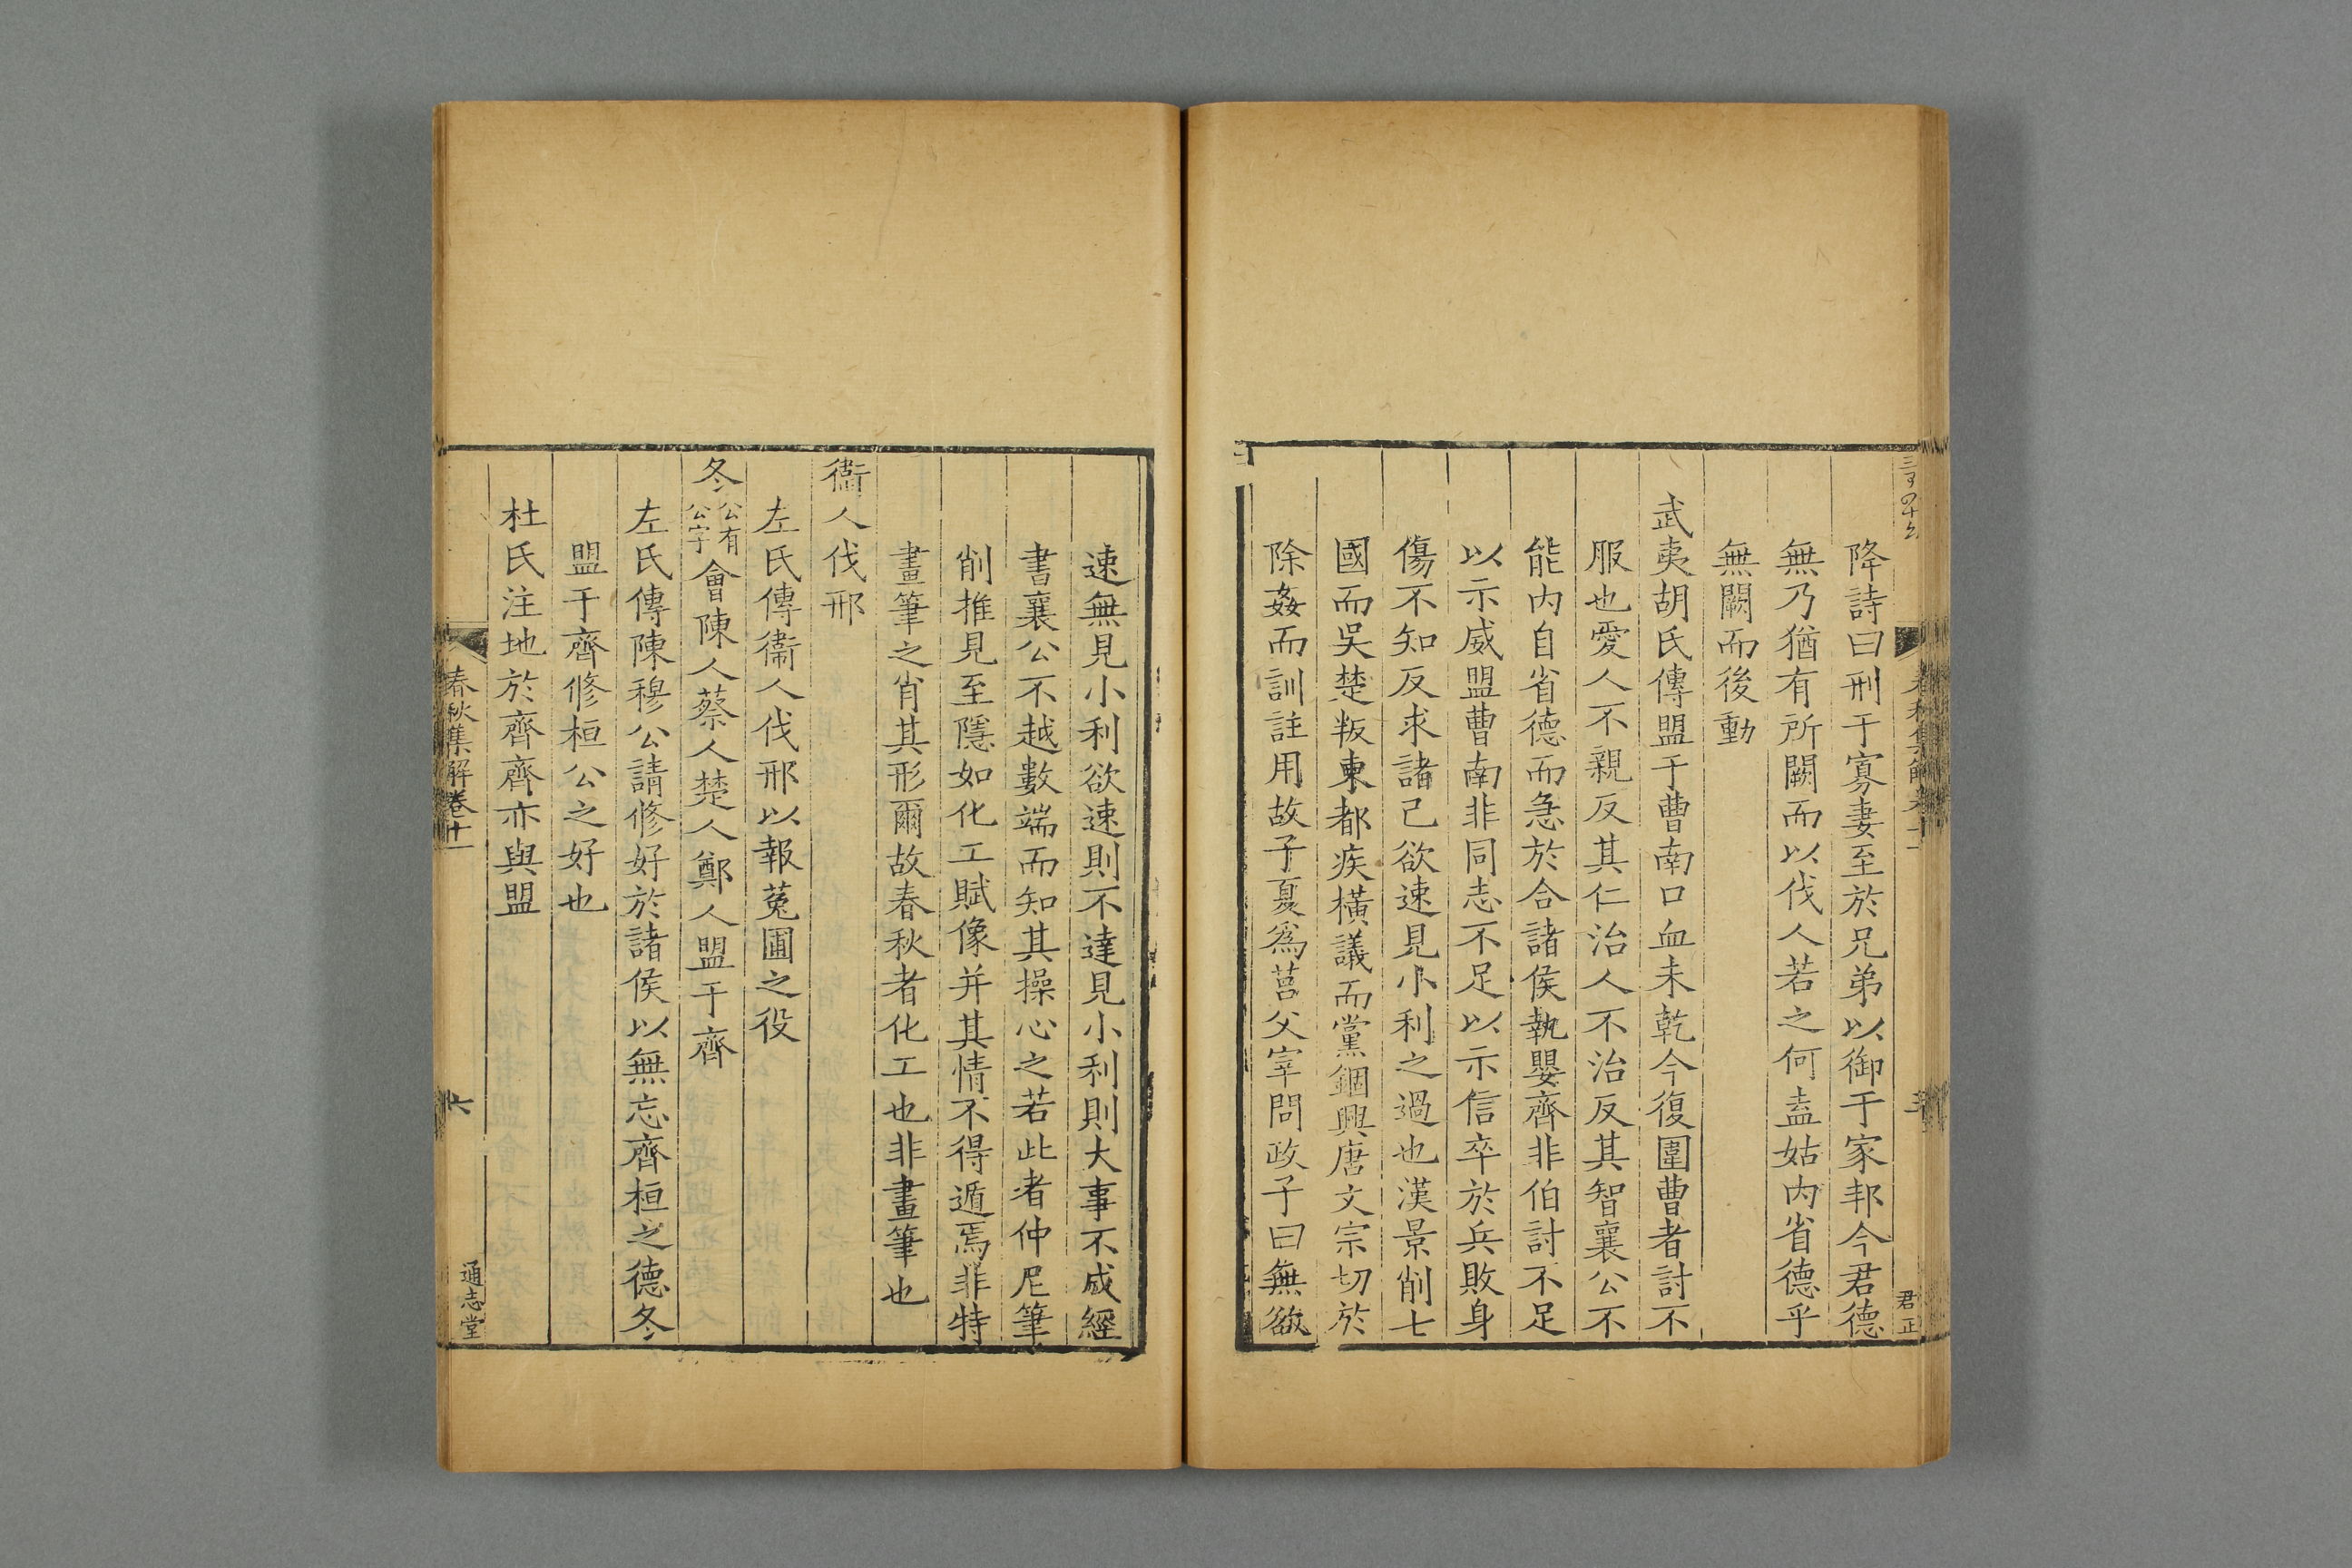 降詩曰刑于寡妻至於兄弟以御于家邦今君德
無乃猶有所闕而以伐人若之何盍姑內省德乎
無闕而後動
武夷胡氏傳盟于曹南口血未乾今復圍曹者討不
服也愛人不親反其仁治人不治反其智襄公不
能內自省德而急於合諸侯執嬰齊非伯討不足
以示威盟曹南非同志不足以示信卒於兵敗身
傷不知反求諸己欲速見小利之過也漢景削七
國而吳楚叛東都疾橫議而黨錮興唐文宗切於
除姦而訓註用故子夏爲莒父宰問政子曰無欲
君正
速無見小利欲速則不達見小利則大事不成經
書襄公不越數端而知其操心之若此者仲尼筆
削推見至隱如化工賦像并其情不得遁焉非特
畫筆之肖其形爾故春秋者化工也非畫筆也
衞人伐邢
左氏傳衞人伐邢以報菟圃之役
冬公有公字會陳人蔡人楚人鄭人盟于齊
左氏傳陳穆公請修好於諸侯以無忘齊桓之德冬
盟于齊修桓公之好也
杜氏注地於齊齊亦與盟
春秋集解卷十一
六
通志堂